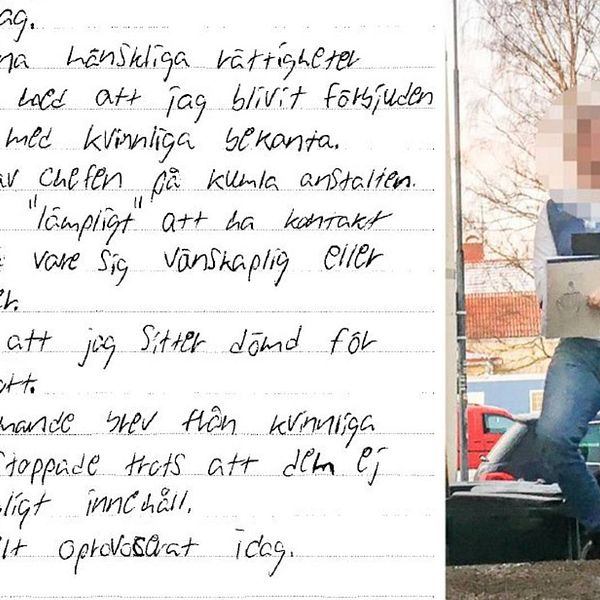 ag.
na mänskliga rättigheter
med att jag blivit förbjuden
med kvinnliga bekanta.
av chefen på kumla anstalten.
"lämpligt" att ha kontakt
vare sig vänskaplig eller
er.
att jag sitter dömd för
ott.
nande brev från kvinnliga
stoppade trots att dem ej
ligt innehåll.
lt oprovocerat idag.